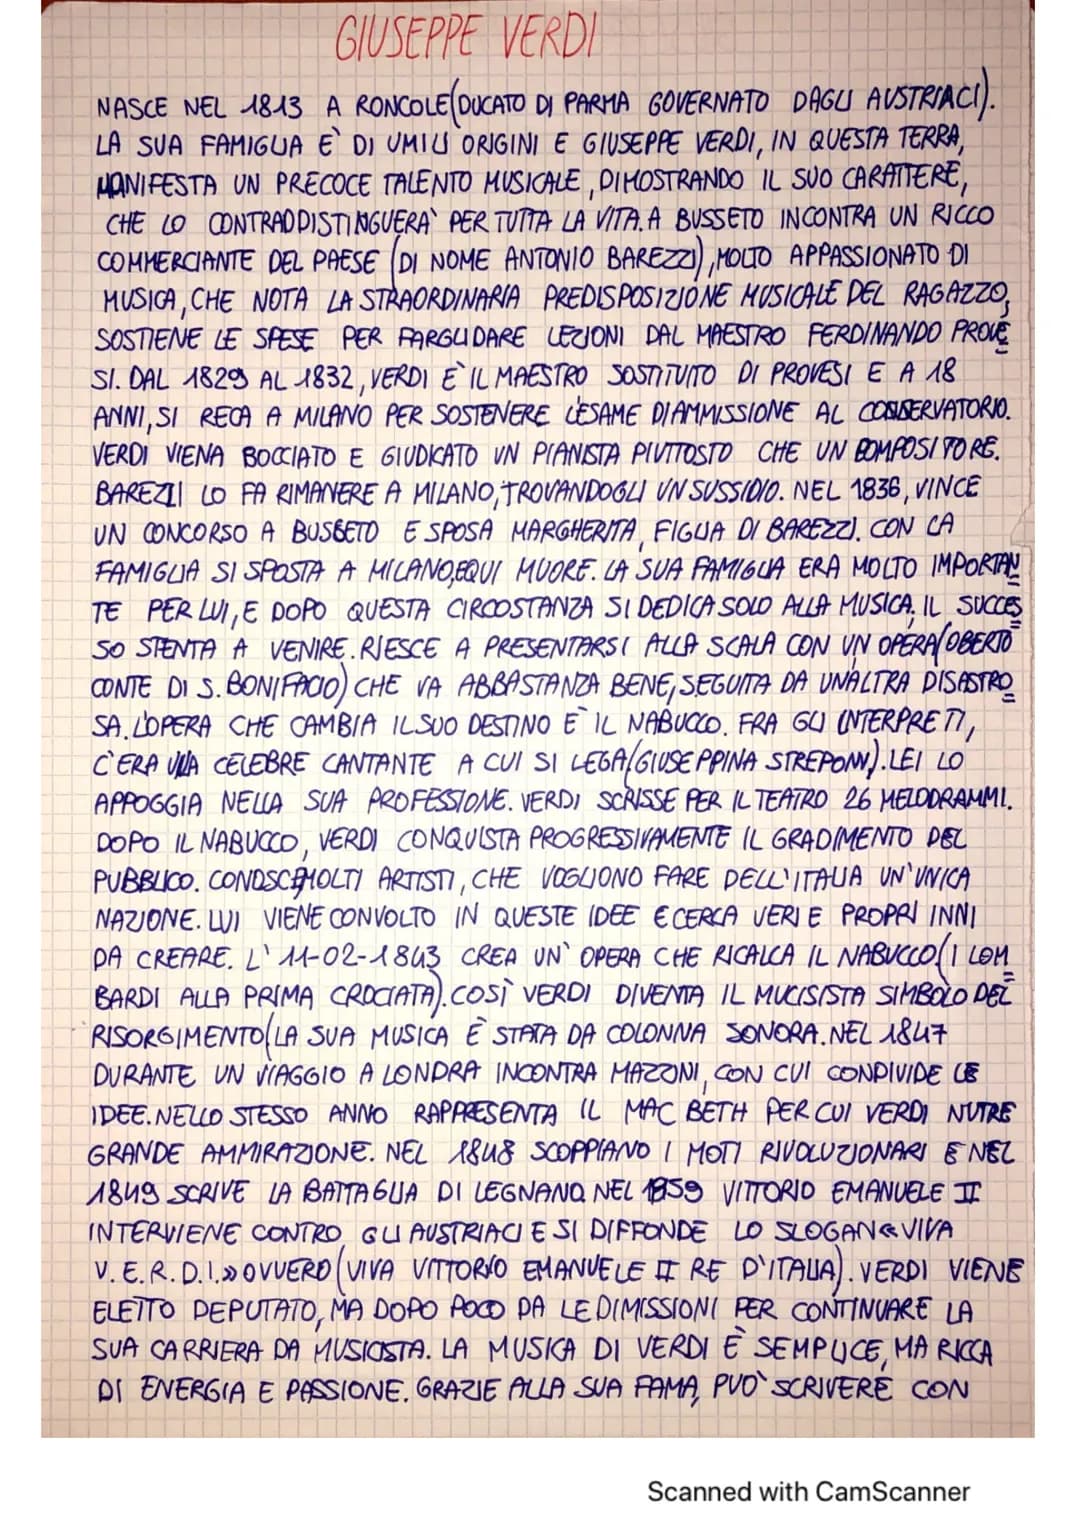 GIUSEPPE VERDI
NASCE NEL 1813 A RONCOLE (DUCATO DI PARMA GOVERNATO DAGLI AUSTRIACI).
LA SUA FAMIGLIA È DI UMILI ORIGINI E GIUSEPPE VERDI, IN QUESTA TERRA,
MANIFESTA UN PRECOCE TALENTO MUSICALE, DIMOSTRANDO IL SUO CARATTERE,
CHE LO CONTRADDISTINGUERA' PER TUTTA LA VITA. A BUSSETO INCONTRA UN RICCO
COMMERCIANTE DEL PAESE (DI NOME ANTONIO BAREZZI), MOLTO APPASSIONATO DI
MUSICA, CHE NOTA LA STRAORDINARIA PREDISPOSIZIONE MUSICALE DEL RAGAZZO,
SOSTIENE LE SPESE PER FARGLI DARE LEZIONI DAL MAESTRO FERDINANDO PROVE
SI. DAL 1829 AL 1832, VERDI E' IL MAESTRO SOSTITUITO DI PROVESI E A 18
ANNI, SI RECA A MILANO PER SOSTENERE L'ESAME DI AMMISSIONE AL CONSERVATORIO.
VERDI VIENA BOCCIATO E GIUDICATO UN PIANISTA PIUTTOSTO CHE UN COMPOSITORE.
BAREZZI LO FA RIMANERE A MILANO, TROVANDOGLI UN SUSSIDIO. NEL 1836, VINCE
UN CONCORSO A BUSSETO E SPOSA MARGHERITA, FIGLIA DI BAREZZI. CON LA
FAMIGLIA SI SPOSTA A MILANO, E QUI MUORE. LA SUA FAMIGLIA ERA MOLTO IMPORTAN
TE PER LUI, E DOPO QUESTA CIRCOSTANZA SI DEDICA SOLO ALLA MUSICA. IL SUCCES
SO STENTA A VENIRE. RIESCE A PRESENTARSI ALLA SCALA CON UN OPERA (OBERTO
CONTE DI S. BONIFACIO) CHE VA ABBASTANZA BENE, SEGUITA DA UN'ALTRA DISASTRO
SA. L'OPERA CHE CAMBIA IL SUO DESTINO E' IL NABUCCO. FRA GLI INTERPRETI,
C'ERA UNA CELEBRE CANTANTE A CUI SI LEGA (GIUSEPPINA STREPONI). LEI LO
APPOGGIA NELLA SUA PROFESSIONE. VERDI SCRISSE PER IL TEATRO 26 MELODRAMMI.
DOPO IL NABUCCO, VERDI CONQUISTA PROGRESSIVAMENTE IL GRADIMENTO DEL
PUBBLICO. CONOSCE MOLTI ARTISTI, CHE VOGLIONO FARE DELL'ITALIA UN'UNICA
NAZIONE. LUI VIENE CONVOLTO IN QUESTE IDEE E CERCA VERI E PROPRI INNI
DA CREARE. L' 11-02-1843 CREA UN' OPERA CHE RICALCA IL NABUCCO (I LOM
BARDI ALLA PRIMA CROCIATA). COSÌ VERDI DIVENTA IL MUCISISTA SIMBOLO DEL
RISORGIMENTO (LA SUA MUSICA È STATA DA COLONNA SONORA. NEL 1847
DURANTE UN VIAGGIO A LONDRA INCONTRA MAZZONI, CON CUI CONDIVIDE LE
IDEE. NELLO STESSO ANNO RAPPRESENTA IL MAC BETH PER CUI VERDI NUTRE
GRANDE AMMIRAZIONE. NEL 1848 SCOPPIANO I MOTI RIVOLUZIONARI E NEL
1849 SCRIVE LA BATTAGLIA DI LEGNANO. NEL 1859 VITTORIO EMANUELE II
INTERVIENE CONTRO GLI AUSTRIACI E SI DIFFONDE LO SLOGAN «VIVA
V.E.R.D.I.» OVVERO (VIVA VITTORIO EMANUELE II RE D'ITALIA). VERDI VIENE
ELETTO DEPUTATO, MA DOPO POCO DA LE DIMISSIONI PER CONTINUARE LA
SUA CARRIERA DA MUSICISTA. LA MUSICA DI VERDI È SEMPLICE, MA RICCA
DI ENERGIA E PASSIONE. GRAZIE ALLA SUA FAMA, PUO' SCRIVERE CON
Scanned with CamScanner